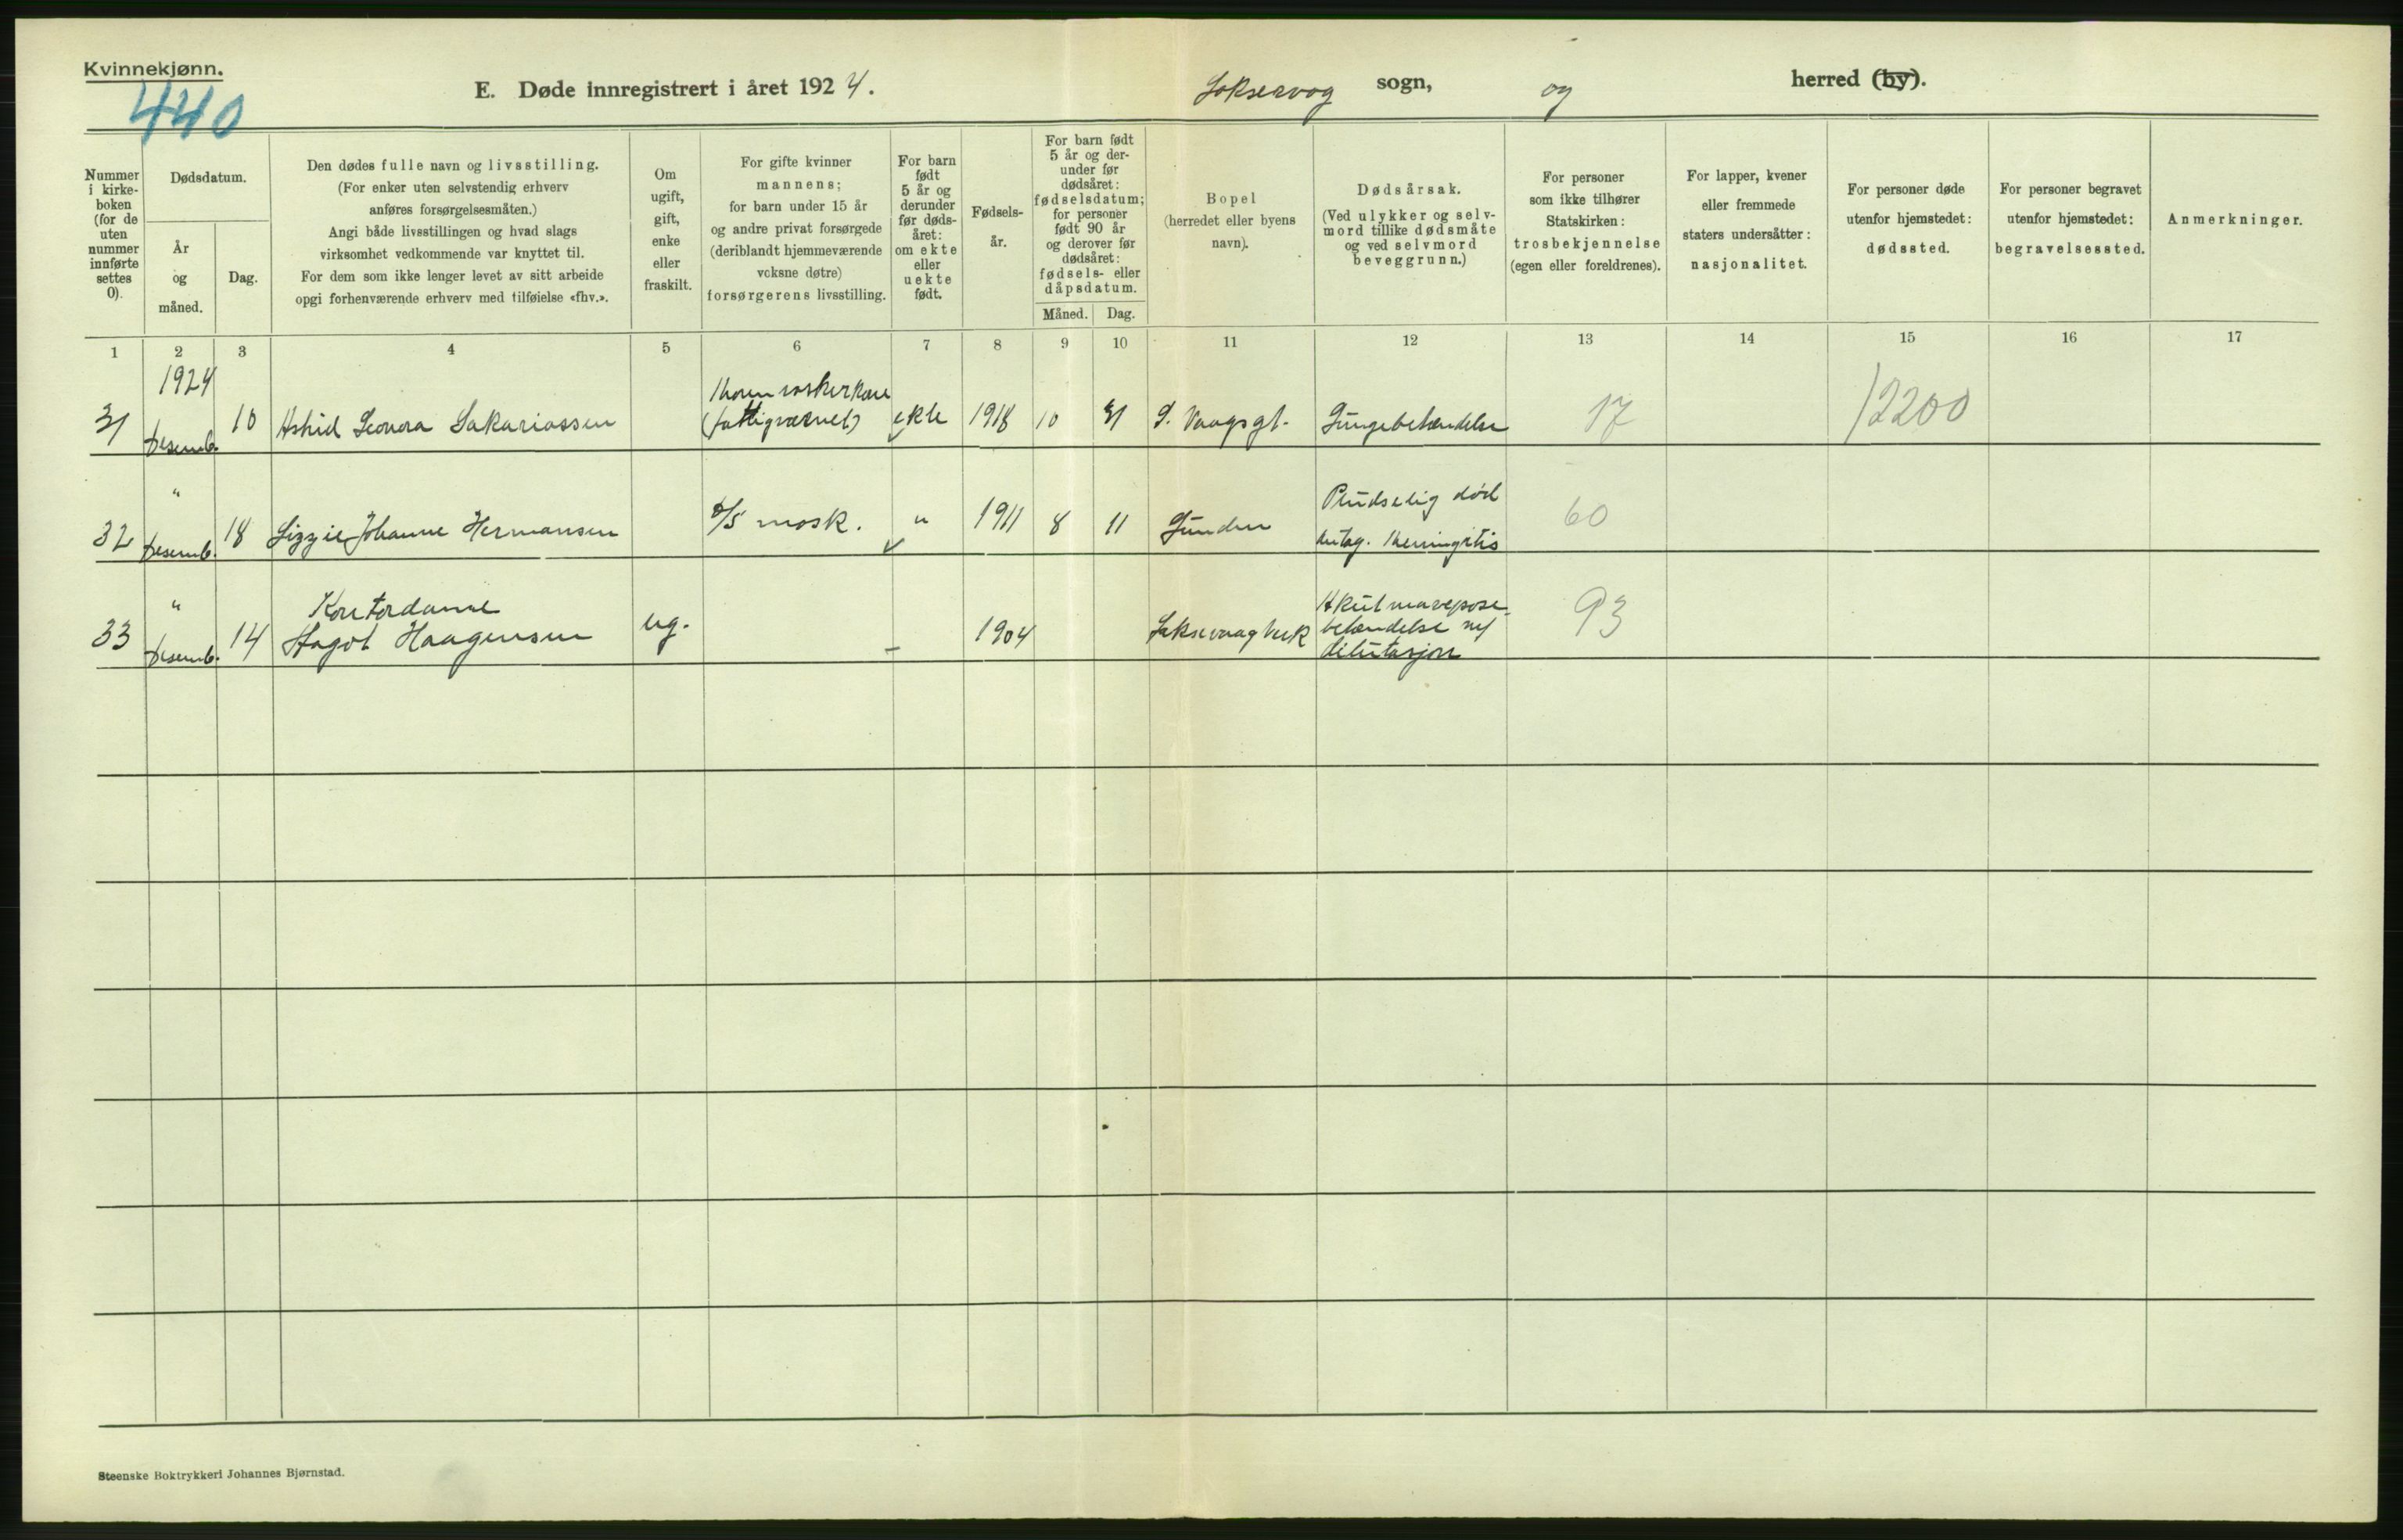 Kvinnekjønn.
440
E. Døde innregistrert i året 1924.
Laksevog sogn, og herred (by).
Nummer
i kirke-
boken
(for de
uten
nummer
innførte
settes
0).
Dødsdatum.
År
og
måned.
Dag.
Den dødes fulle navn og livsstilling.
(For enker uten selvstendig erhverv
anføres forsørgelsesmåten.)
Angi både livsstillingen og hvad slags
virksomhet vedkommende var knyttet til.
For dem som ikke lenger levet av sitt arbeide
opgi forhenværende erhverv med tilføielse «fhv.».
Om
ugift,
gift,
enke
eller
fraskilt.
For gifte kvinner
mannens;
for barn under 15 år
og andre privat forsørgede
(deriblandt hjemmeværende
voksne døtre)
forsørgerens livsstilling.
For barn
født
5 år og
derunder
før døds-
året:
om ekte
eller
uekte
født.
Fødsels-
år.
For barn født
5 år og der-
under før
dødsåret:
fødselsdatum;
for personer
født 90 år
og derover før
dødsåret:
fødsels- eller
dåpsdatum.
Måned.
Dag.
Bopel
(herredet eller byens
navn).
Dødsårsak.
(Ved ulykker og selv-
mord tillike dødsmåte
og ved selvmord
beveggrunn.)
For personer
som ikke tilhører
Statskirken:
trosbekjennelse
(egen eller foreldrenes).
For lapper, kvener
eller fremmede
staters undersåtter:
nasjonalitet.
For personer døde
utenfor hjemstedet:
dødssted.
For personer begravet
utenfor hjemstedet:
begravelsessted.
Anmerkninger.
1 2 3 4 5 6 7 8 9 10 11 12 13 14 15 16 17
1924
31 Desemb. 10 Astrid Leonora Sakariassen
(fattigværnet) ekte 1918 10 31 D. Vaagsgt. Lungebetændelse 17 12200
"
32 Desemb. 18 Lizzie Johanne Hermansen
d/s mask. " 1911 8 11 Lunden
Pludselig død
antag. Meningitis
60
"
33 Desemb. 14
Kontordame
Aagot Haagensen
ug. – 1904 Laksevaag Verk
Akut mavepose-
betændelse m/
dilatasjon
93
Steenske Boktrykkeri Johannes Bjørnstad.